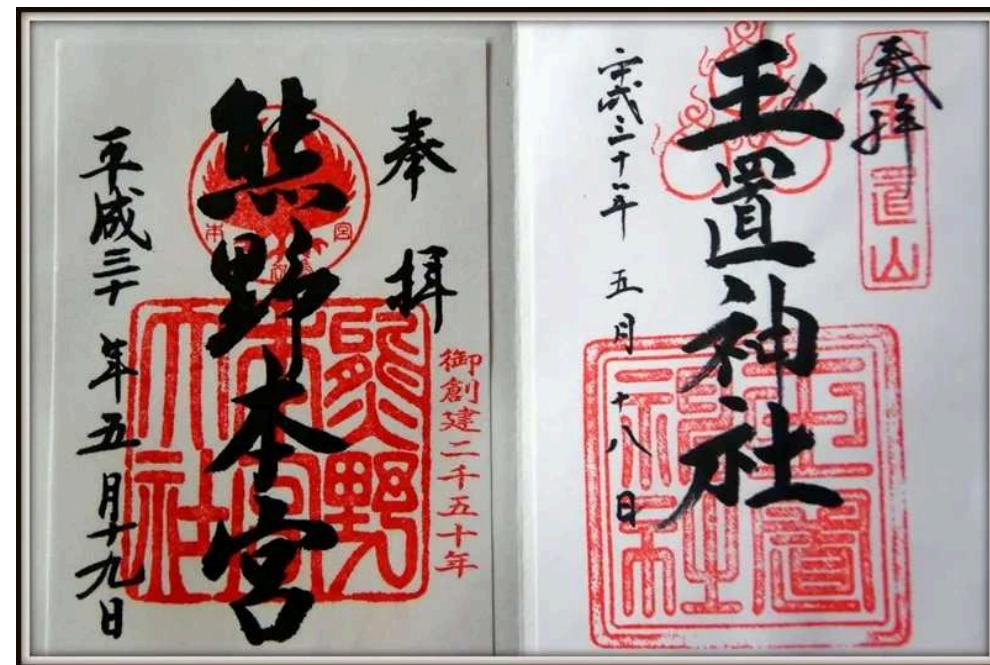 奉拝
熊野本宮
平成三十年五月十九日
御創建二千五十年
熊野本宮大社
奉拝
玉置山
玉置神社
平成三十年 五月十八日